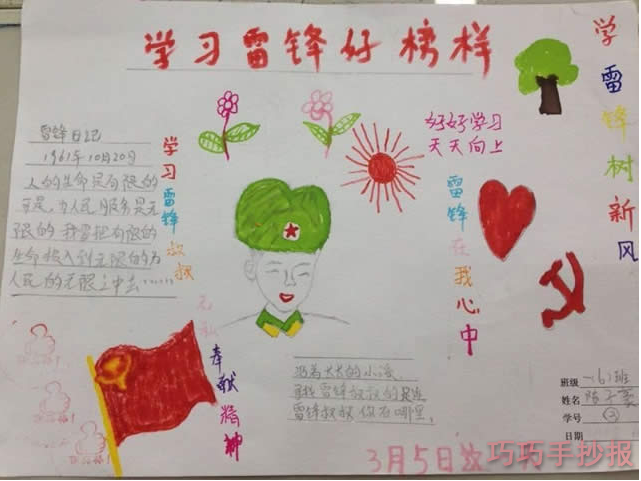 学习雷锋好榜样
雷锋日记
1961年10月20日
人的生命是有限的
可是，为人民服务是无
限的 我要把有限的
生命投入到无限的为
人民的无限之中去……
学习雷锋叔叔
无私
奉献精神
好好学习
天天向上
雷锋在我心中
学雷锋树新风
沿着长长的小溪
寻找雷锋叔叔的足迹
雷锋叔叔你在哪里
班级 一(6)班
姓名
学号
日期
3月5日
巧巧手抄报